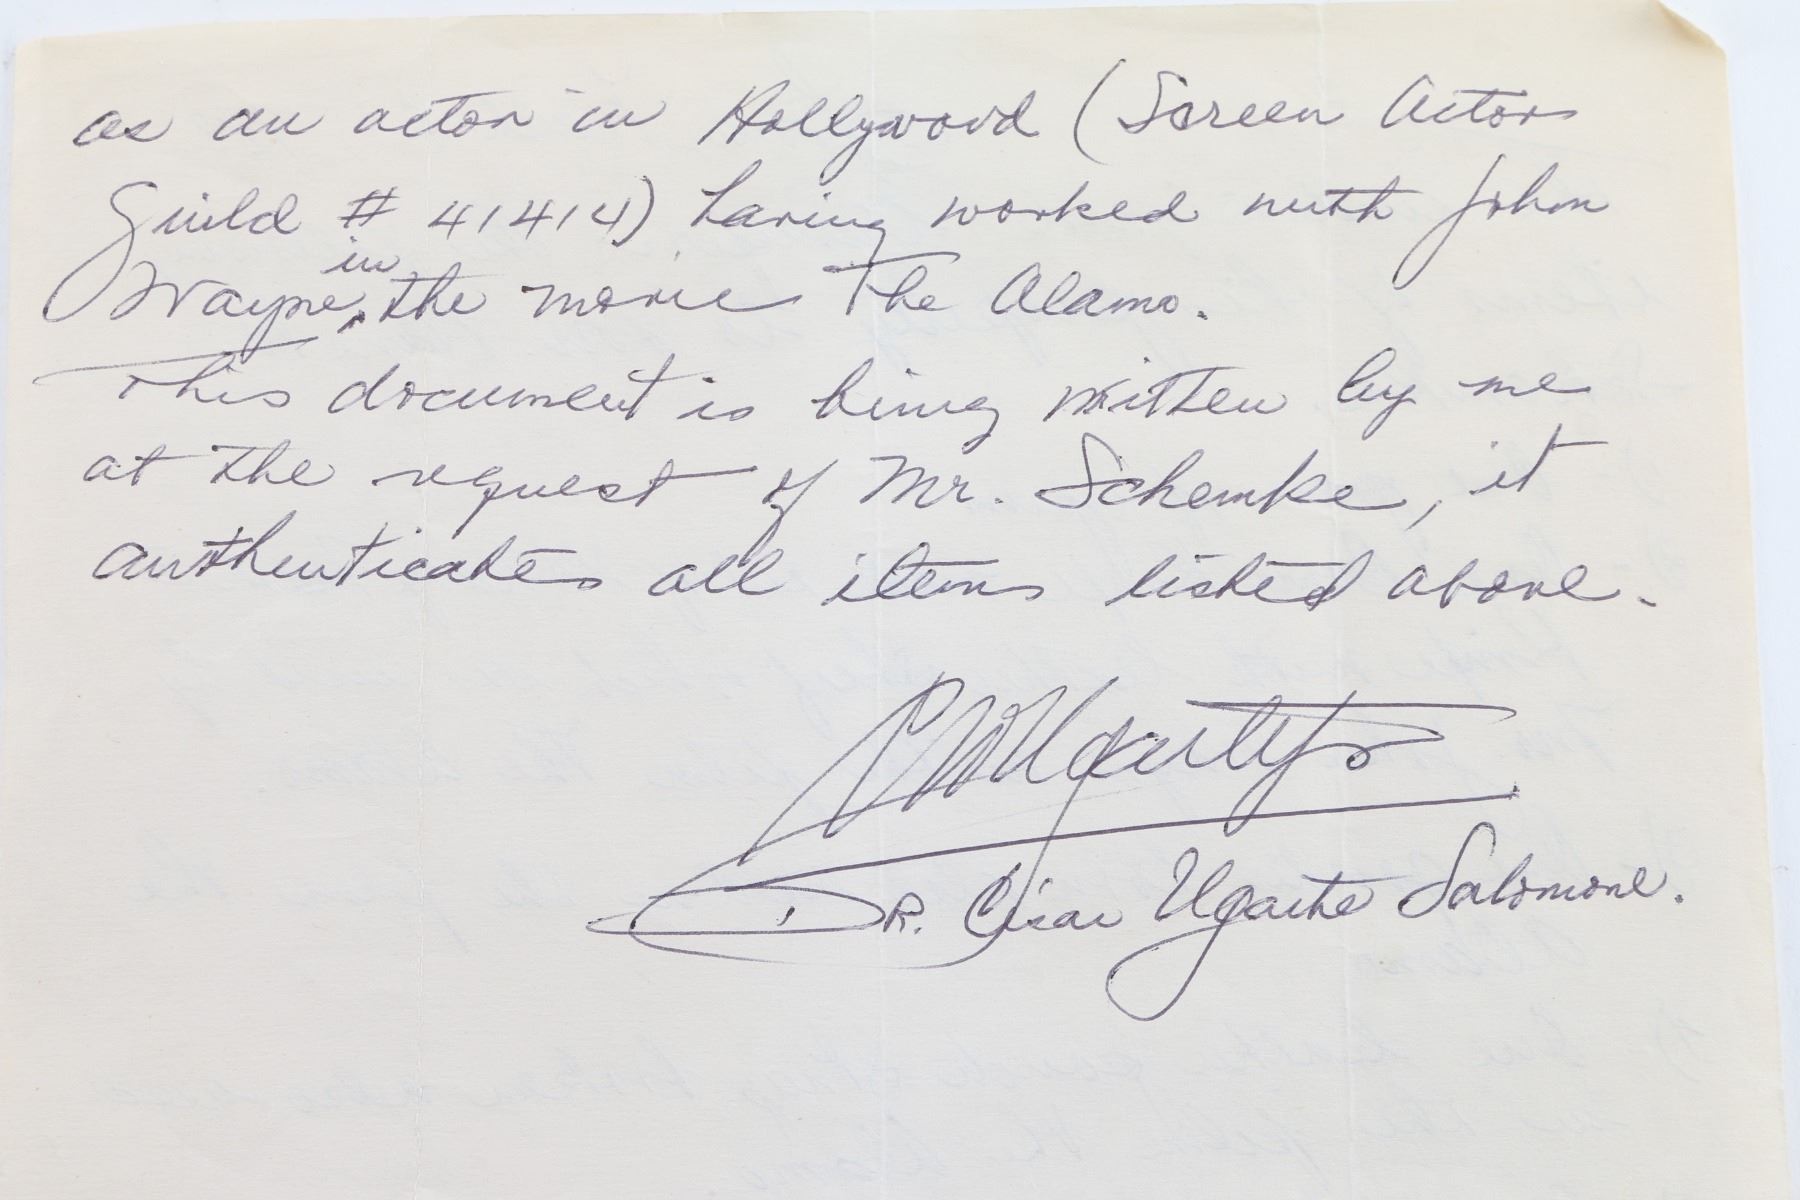 as an actor in Hollywood (Screen Actors
Guild # 41414) having worked with John
in
Wayne, the movie The Alamo.
This document is being written by me
at the request of Mr. Schemke, it
authenticates all items listed above.
DR. César Ugarte Salomone.